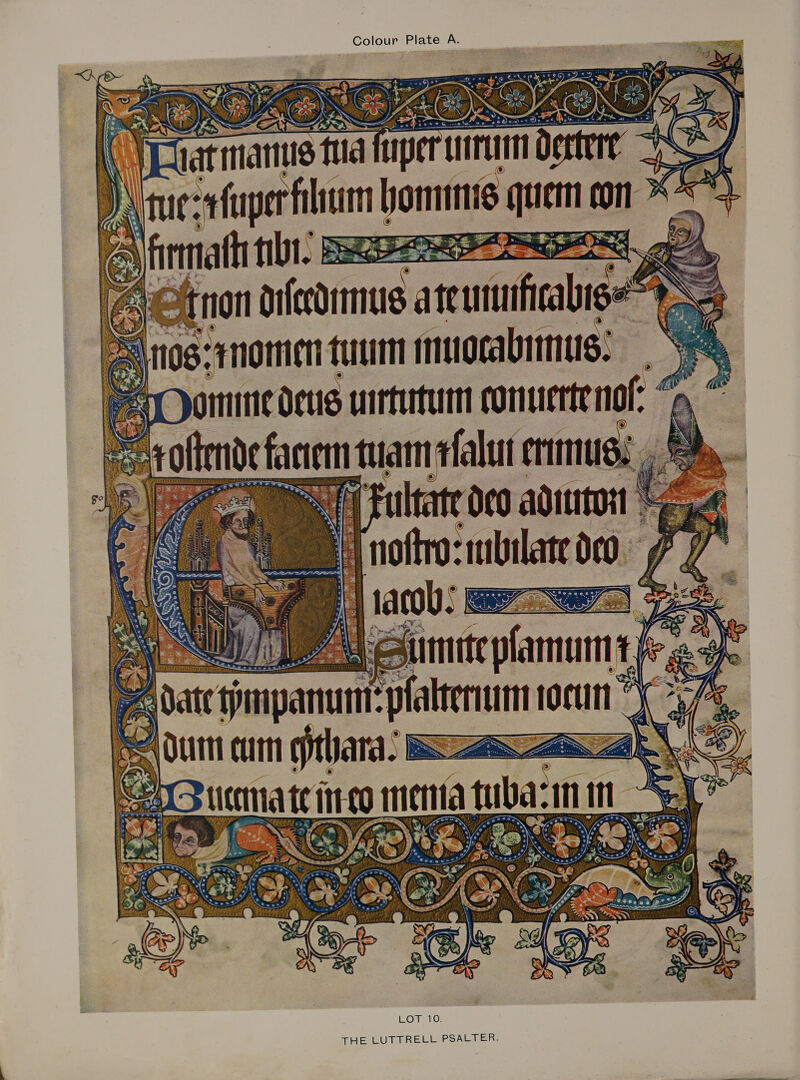 Colour Plate A.
Fiat manus tua super uirum dextere
tue: ⁊ super filium hominis quem con
firmasti tibi.
Et non discedimus a te uiuificabis
nos: ⁊ nomen tuum inuocabimus.
Domine deus uirtutum conuerte nos:
⁊ ostende faciem tuam ⁊ salui erimus.
Exultate deo adiutori
nostro: iubilate deo
iacob.
Sumite psamum ⁊
date tympanum: psalterium iocun
dum cum cythara.
Buccinate in eo menia tuba: in in
LOT 10.
THE LUTTRELL PSALTER.